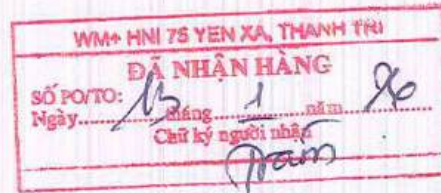 WM+ HNI 75 YEN XA, THANH TRI
ĐÃ NHẬN HÀNG
SỐ PO/TO:
Ngày 13 tháng 1 năm 26
Chữ ký người nhận